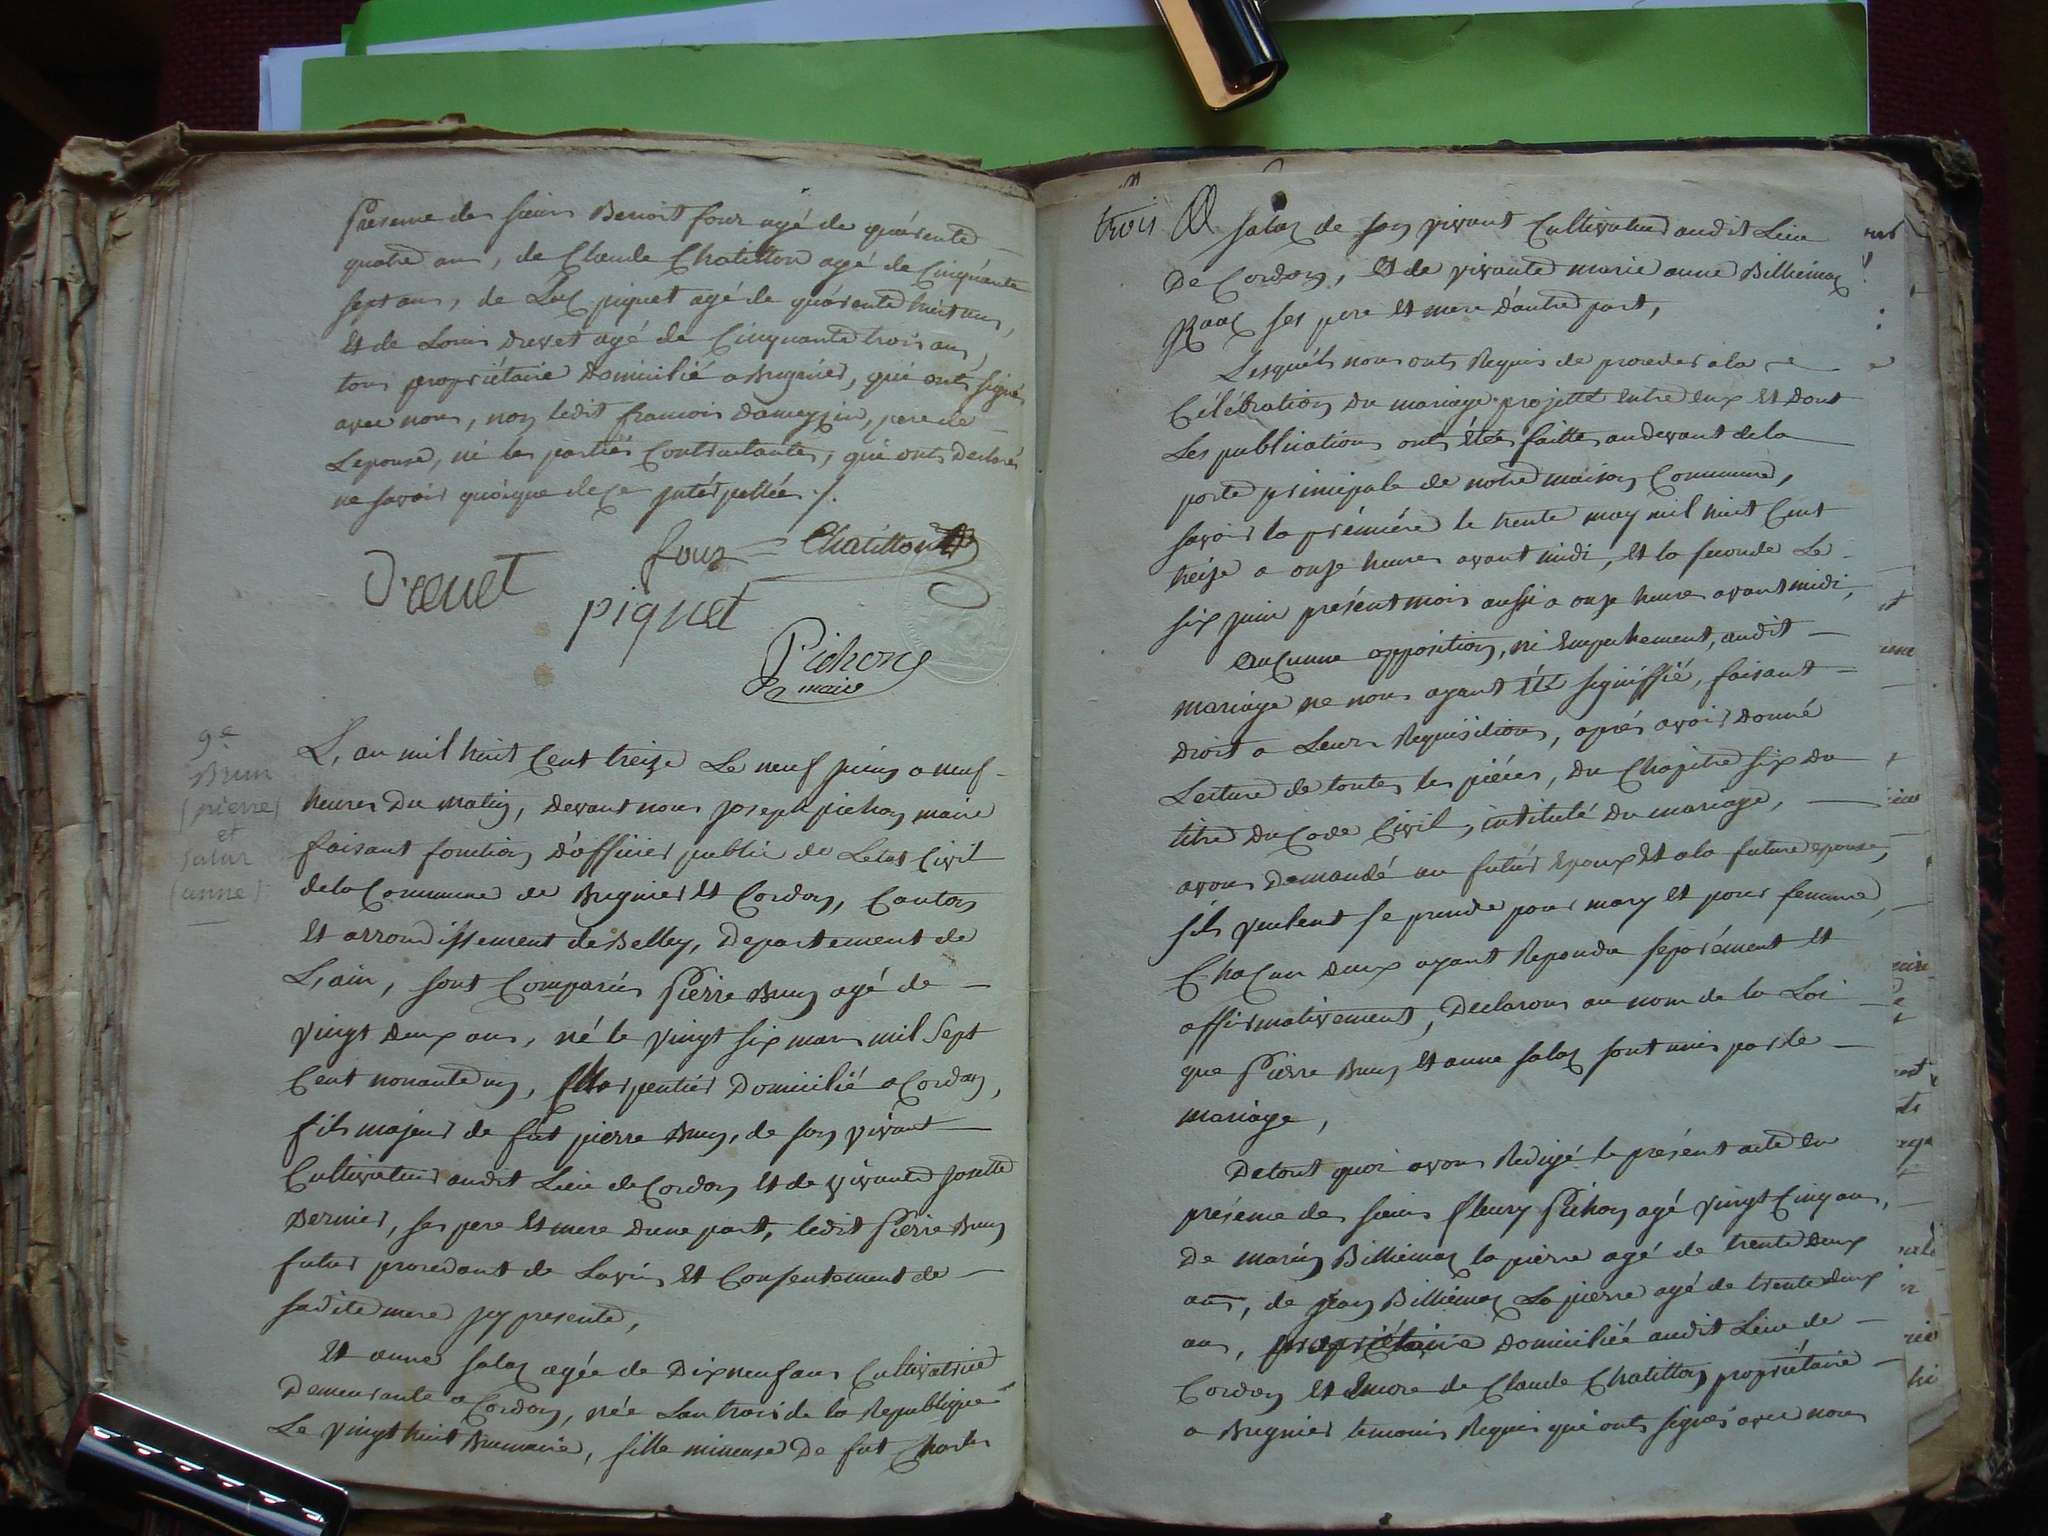 presence des sieurs Benoit four agé de quarente
quatre ans, de Claude Chatillon agé de Cinquante
sept ans, de Luc piquet agé de quarente huit ans,
Et de Louis Drevet agé de Cinquante trois ans,
tous propriétaire Domicilié a Brégnier, qui onts signé
avec nous, non ledit francois dameyzin, pere de
Lepouse, ni les partiés Contractantes, qui onts declarés
ne savoir quoique de ce jntérpellée ./.
four Chatillon
Drevet
piquet
Pichon
maire
9e
Brun
(pierre)
et
Salaz
(anne)
L, an mil huit Cent treize Le neuf juin a neuf
heures Du matin, Devant nous joseph pichon maire
faisant fonction D'officier public de Letat Civil
de la Commune de Bregnier Et Cordon, Canton
Et arrondissement de Belley, Departement de
L'ain, sont Comparus Pierre Brun agé de
vingt deux ans, né le vingt six mars mil sept
Cent nonante un, Charpentier Domicilié a Cordon,
fils majeur de fut pierre Brun, de son vivant
Cultivateur audit Lieu de Cordon Et de vivante josette
Dernier, ses pere Et mere dune part, ledit Pierre Brun
futur procedant de Lavis Et Consentement de
sadite mere jcy presente,
Et anne salaz agée de Dixneuf ans Cultivatrice
Demeurante a Cordon, née Lan trois de la Republique
Le vingt huit Brumaire, fille mineure De fut Charles
trois
salaz de son vivant Cultivateur audit Lieu
De Cordon, Et de vivante marie anne Billiemaz
ses pere Et mere D'autre part,
Lesquéls nous onts Requis de proceder a la
Célébration Du mariage projetté Entre Eux Et dont
Les publications onts étéés faittes audevant de la
porte principale de notre maison Commune,
savoir la prémiére le trente may mil huit Cent
treize a onze heures avant midi, Et la seconde Le
six juin présent mois aussi a onze heures avant midi,
Aucunne opposition, ni Empechement, audit
mariage ne nous ayant été signiffié, faisant
Droit a Leurs Requisitions, aprés avoir donné
Lecture de toutes les piéces, Du Chapitre six Du
titre Du Code Civil, intitulé Du mariage,
avons Demandé au futur Epoux Et a la future epouse,
sils veulent se prendre pour mary Et pour femme,
Chacun deux ayant Repondu separément Et
affirmativement, Declarons au nom de la Loi
que Pierre Brun Et anne salaz sont unis par le
mariage,
De tout quoi avons Redigé le présent acte En
présence des sieurs fleury Pichon agé vingt Cinq ans,
De marin Billiemaz la pierre agé de trente deux
ans, de jean Billiemaz La pierre agé de trente deux
ans, propriétaire Domicilié audit Lieu de
Cordon Et Encore de Claude Chatillon propriétaire
a Bregnier temoins Requis qui onts signés avec nous